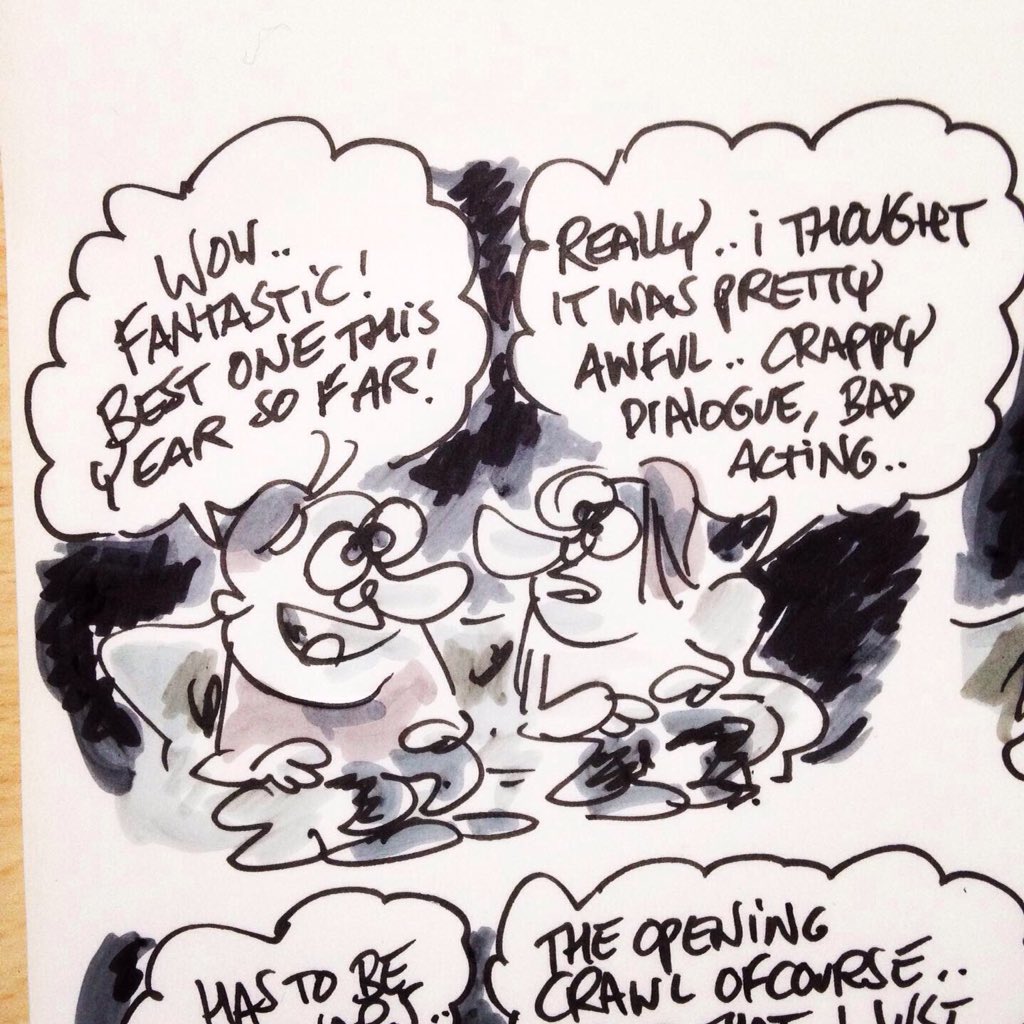 WOW..
FANTASTIC!
BEST ONE THIS
YEAR SO FAR!
REALLY.. i THOUGHT
IT WAS PRETTY
AWFUL.. CRAPPY
DIALOGUE, BAD
ACTING..
HAS TO BE
THE OPENING
CRAWL OFCOURSE..